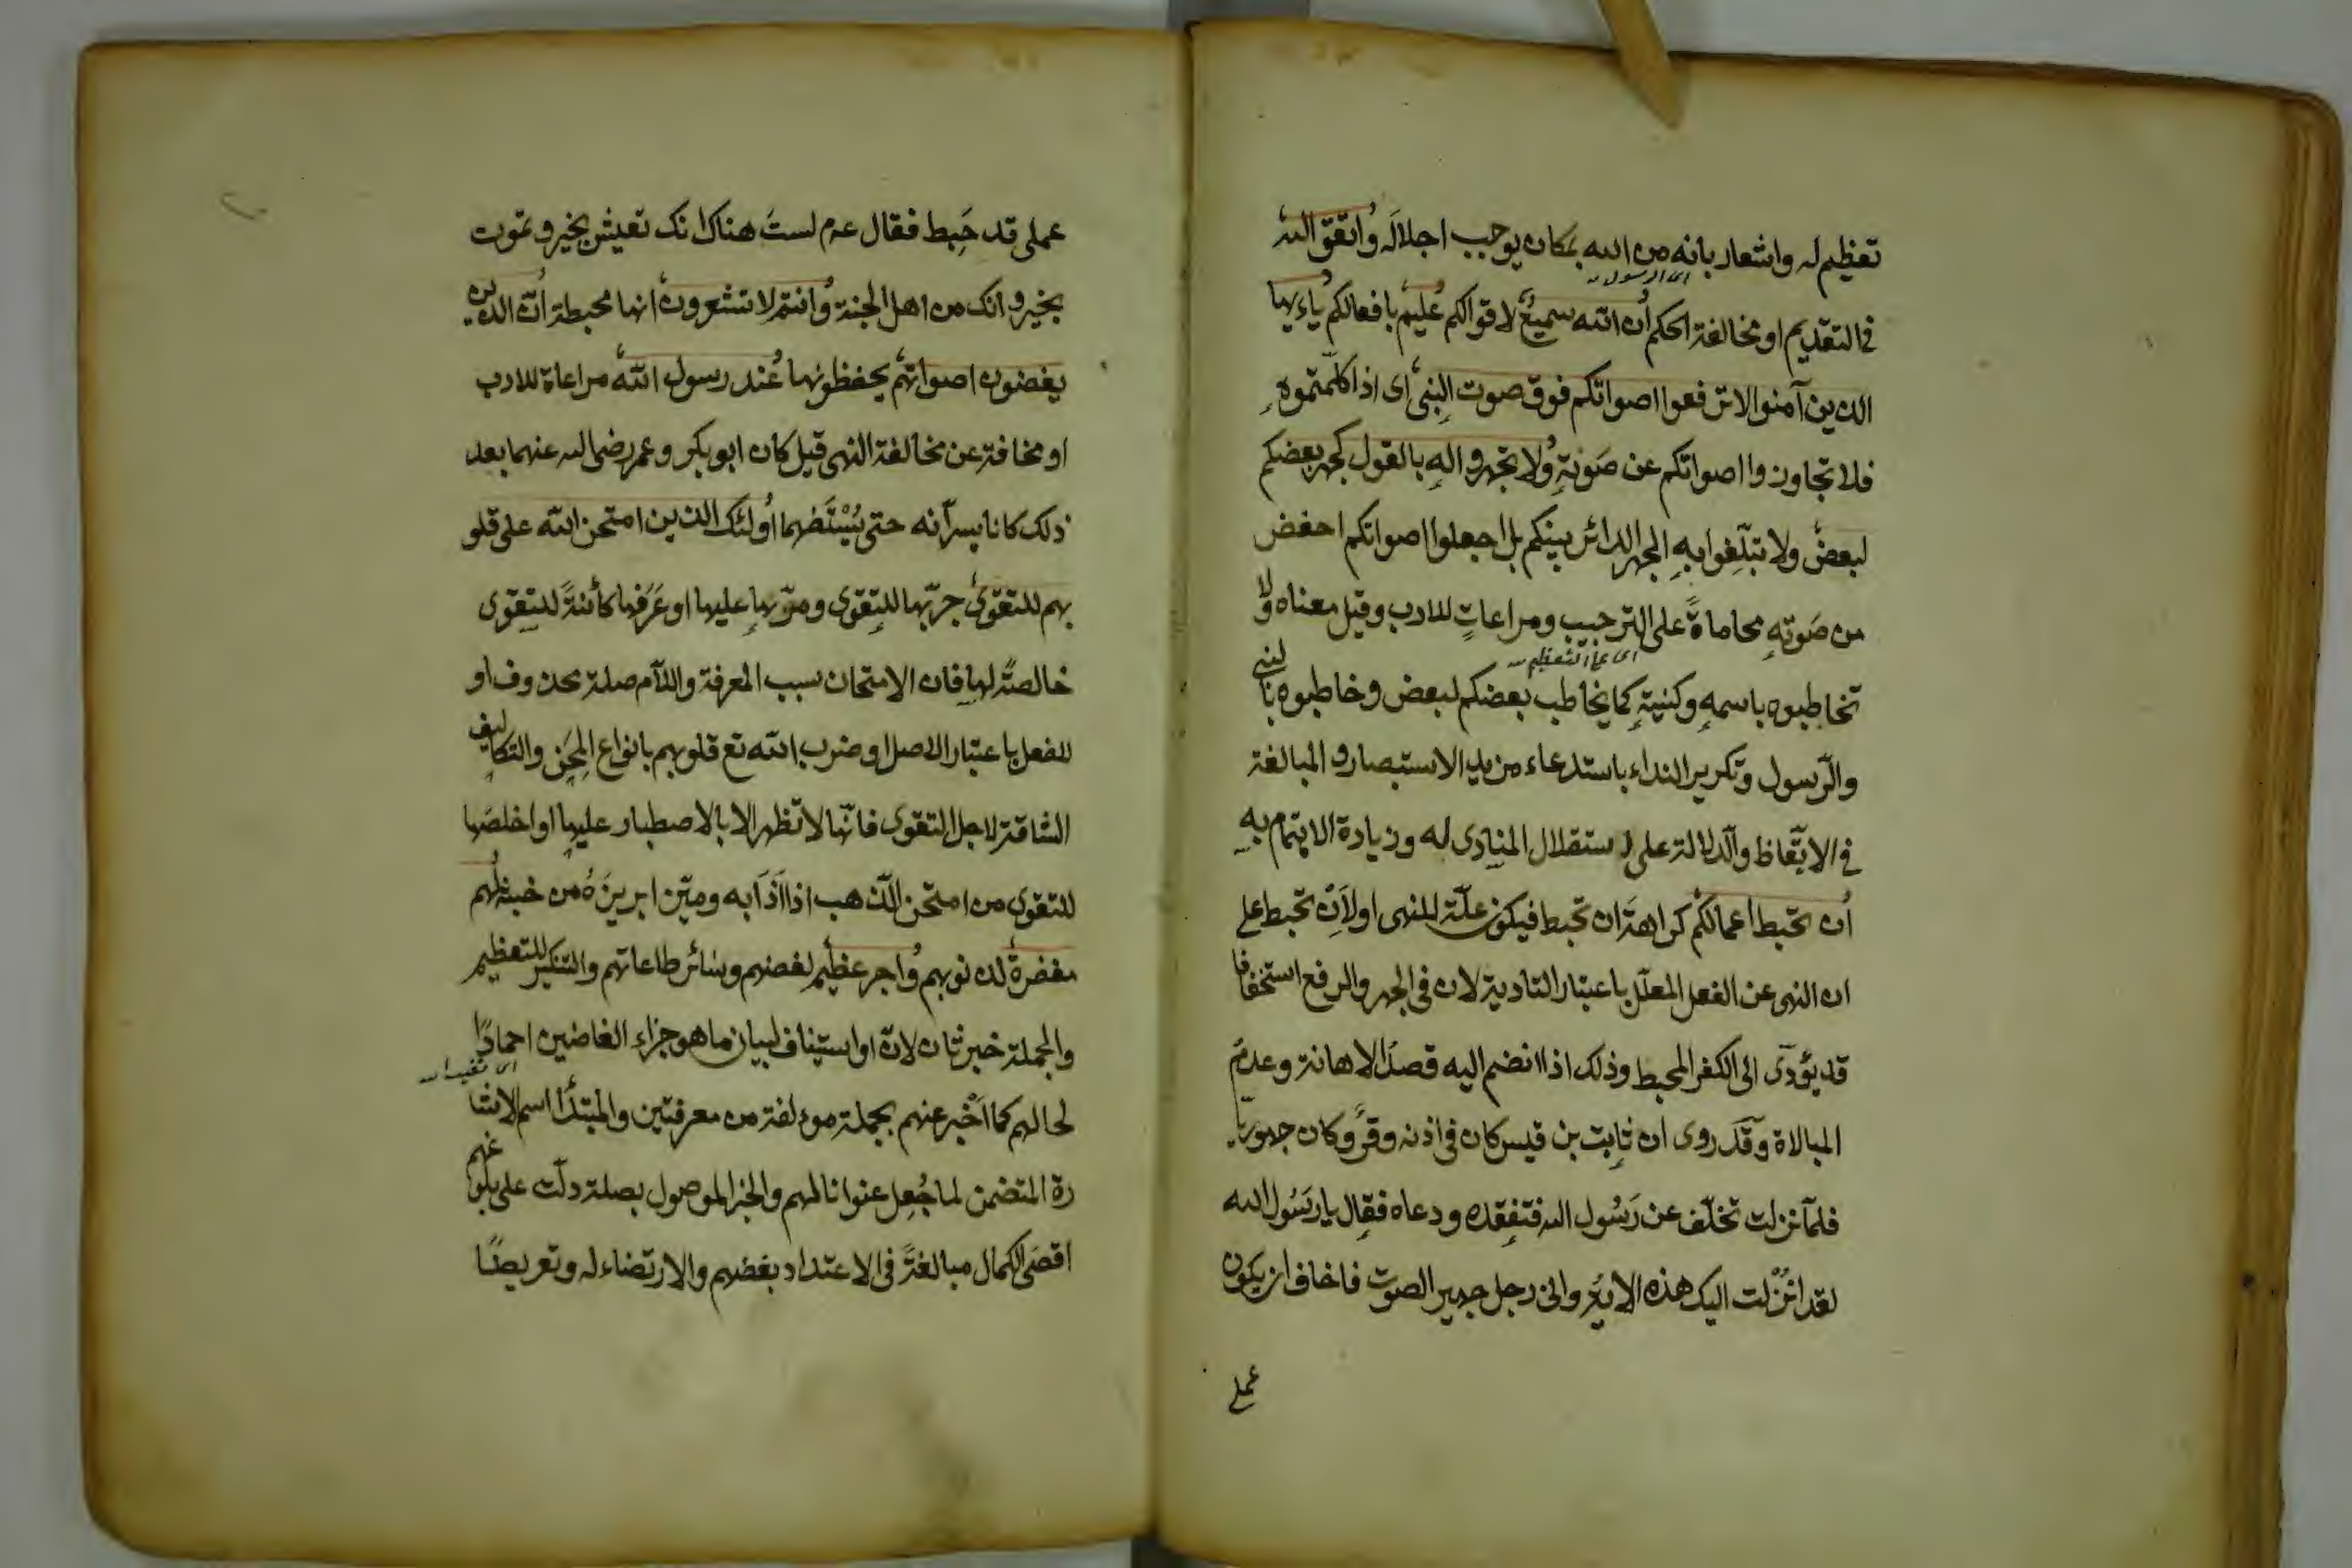 تعظيم له واشعار بانه من الله بمكان يوجب اجلاله واتقوا الله
اى الرسول
فى التقديم او مخالفة الحكم ان الله سميع لاقوالكم عليم بافعالكم ياءيها
الذين آمنوا لا ترفعوا اصواتكم فوق صوت النبى اى اذا كلمتموه
فلا تجاوزوا اصواتكم عن صوته ولا تجهروا له بالقول كجهر بعضكم
لبعض ولا تبلغوا به الجهر الدائر بينكم بل اجعلوا اصواتكم احفض
من صوته محاماة على الترحيب ومراعات للادب وقيل معناه ولا
اى على التعظيم
تخاطبوه باسمه وكنيته كما يخاطب بعضكم لبعض وخاطبوه بالنبى
والرسول وتكرير النداء باستدعاء مزيد الاستبصار و المبالغة
فى الايقاظ والدلالة على استقلال المنادى له وزيادة الاهتمام به
ان تحبط اعمالكم كراهة ان تحبط فيكون علة للنهى او لان تحبط على
ان النهى عن الفعل المعلل باعتبار التادية لان فى الجهر والرفع استخفافا
قد يؤدى الى الكفر المحبط وذلك اذا انضم اليه قصد الاهانة وعدم
المبالاة وقد روى ان ثابت بن قيس كان فى اذنه وقر وكان جهوريا
فلما نزلت تخلف عن رسول الله فتفقده ودعاه فقال يا رسول الله
لقد انزلت اليك هذه الاية وانى رجل جهير الصوت فاخاف ان يكون
عملى
عملى قد حبط فقال عم لست هناك انك تعيش بخير وتموت
بخير وانك من اهل الجنة وانتم لا تشعرون انها محبطة ان الذين
يغضون اصواتهم يخفظونها عند رسول الله مراعاة للادب
او مخافة عن مخالفة النهى قيل كان ابو بكر وعمر رضى الله عنهما بعد
ذلك كانا يسرانه حتى يستفهما اولئك الذين امتحن الله على قلو
بهم للتقوى جربها للتقوى ومرنها عليها او عرفها كائنة للتقوى
خالصة لها فان الامتحان سبب المعرفة واللام صلة محذوف او
للفعل باعتبار الاصل او ضرب الله تع قلوبهم بانواع المحن والتكاليف
الشاقة لاجل التقوى فانها لا تظهر الا بالاصطبار عليها او اخلصها
للتقوى من امتحن الذهب اذا اذابه وميز ابريزه من خبثه لهم
مغفرة لذنوبهم واجر عظيم لغضهم وسائر طاعاتهم والتنكير للتعظيم
والجملة خبر ثان لان او استيناف لبيان ما هو جزاء الغاضين احمادا
لحالهم كما اخبر عنهم بجملة موءلفة من معرفتين والمبتدأ اسم الاشا
رة المتضمن لما جعل عنوانا لهم والخبر الموصول بصلة دلت على بلوغهم
اقصى الكمال مبالغة فى الاعتداد بغضهم والارتضاء له وتعريضا